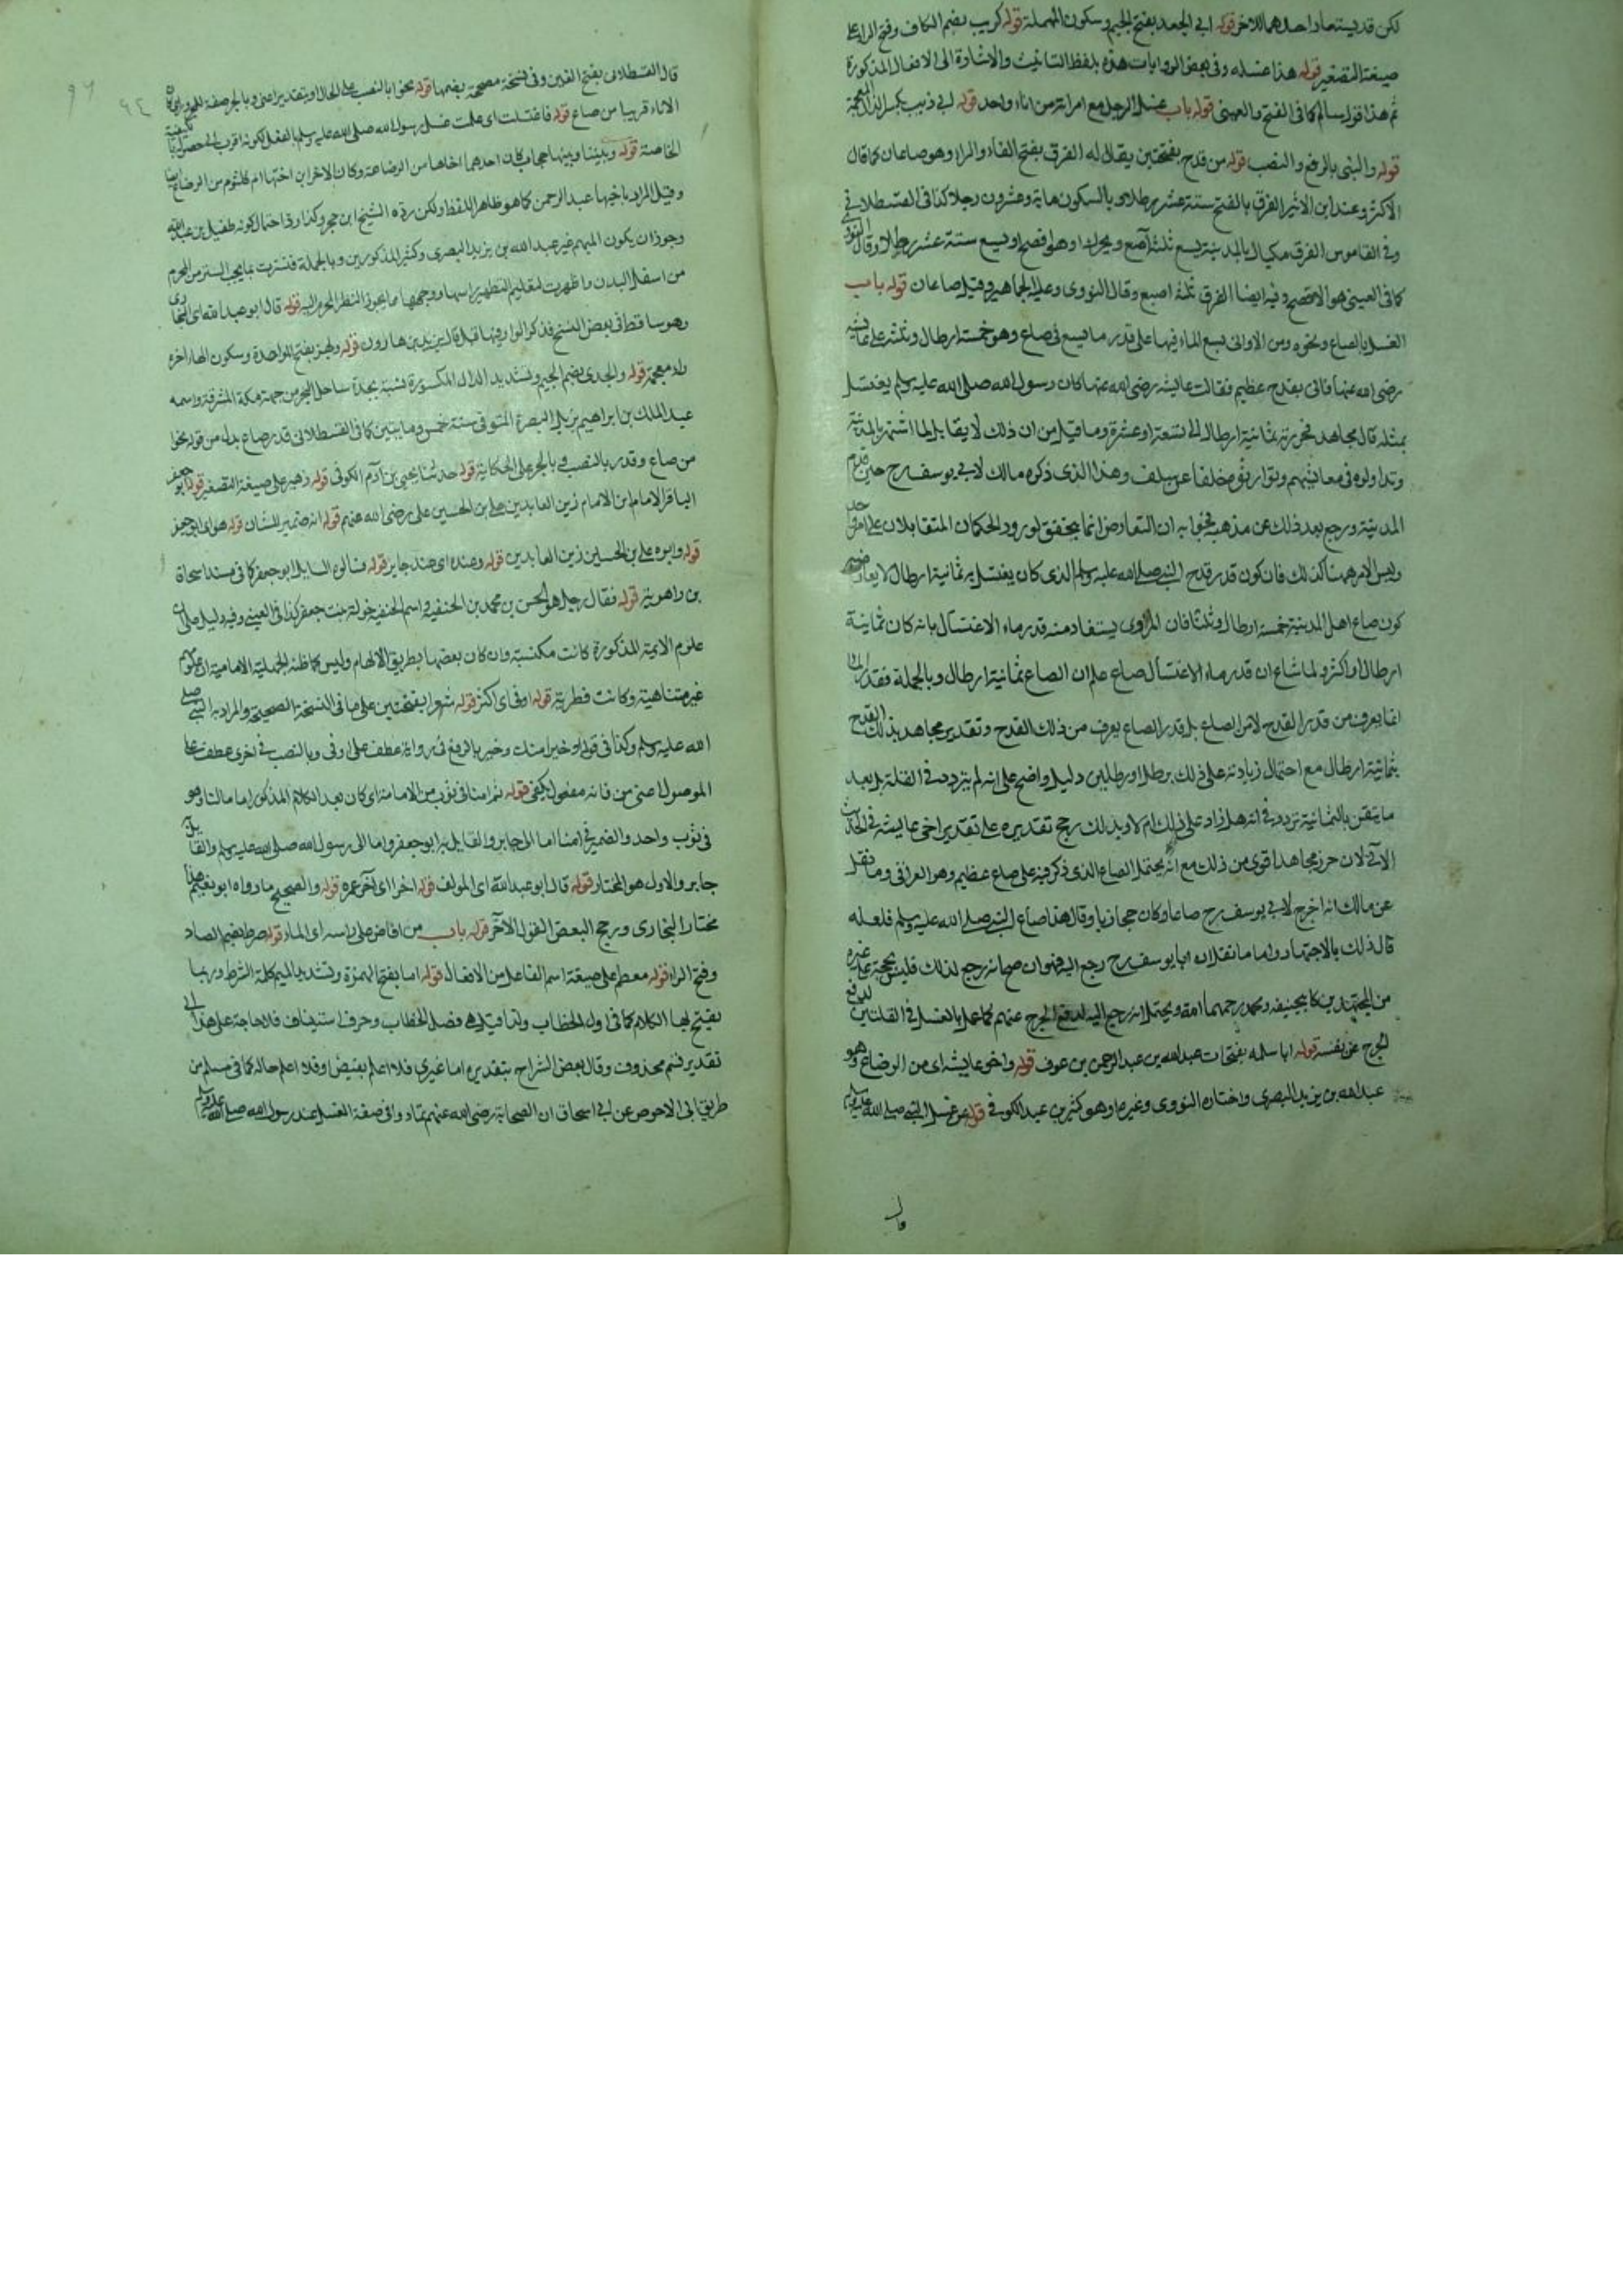 لكن قد يستعار احدهما للاخر قوله ابي الجعد بفتح الجيم وسكون المهملة قوله كريب بضم الكاف وفتح الراء على
صيغة التصغير قوله هذا غسله وفي بعض الروايات هذه بلفظ التانيث والاشارة الى الافعال المذكورة
ثم هذا قول سالم كما في الفتح والعيني قوله باب غسل الرجل مع امراته من اناء واحد قوله ابي ذيب بكسر الذال المعجمة
قوله والنبي بالرفع والنصب قوله من قدح بفتحتين يقال له الفرق بفتح الفاء والراء وهو صاعان كما قال
الاكثر وعند ابن الاثير الفرق بالفتح ستة عشر رطلا وبالسكون ماية وعشرون رجلا كذا في القسطلاني
وفي القاموس الفرق مكيال بالمدينة يسع ثلثة آصع ويحرك او هو افصح او يسع ستة عشر رطلا وقال النووي
كما في العيني هو الافصح وفيه ايضا الفرق ثلثة اصبع وقال النووي وعليه الجماهير وقيل صاعان قوله باب
الغسل بالصاع ونحوه ومن الاواني يسع الماء فيها على قدر ما يسع في صاع وهو خمسة ارطال وثلث على عايشة
رضي الله عنها فاتي بقدح عظيم فقالت عايشة رضي الله عنها كان رسول الله صلى الله عليه وسلم يغتسل
بمثله قال مجاهد فحزرته ثمانية ارطال الى تسعة او عشرة وما قيل من ان ذلك لا يقابل بما اشتهر بالمدينة
وتداولوه في معايشهم وتوارثوه خلفا عن سلف وهذا الذي ذكره مالك لابي يوسف رح حين قدم
المدينة ورجع بعد ذلك عن مذهبه فجوابه ان التعارض انما يتحقق لو ورد الحكمان المتقابلان على امر واحد
وليس الامر ههنا كذلك فان كون قدر قدح النبي صلى الله عليه وسلم الذي كان يغتسل به ثمانية ارطال لا يعارضه
كون صاع اهل المدينة خمسة ارطال وثلثا فان المروي يستفاد منه قدر ماء الاغتسال بانه كان ثمانية
ارطال او اكثر ولما شاع ان قدر ماء الاغتسال صاع علم ان الصاع ثمانية ارطال وبالجملة فقدر الماء
انما يعرف من قدر القدح لا من الصاع بل قدر الصاع يعرف من ذلك القدح وتقدير مجاهد بذلك القدح
بثمانية ارطال مع احتمال زيادته على ذلك برطل او رطلين دليل واضح على انه لم يتردد في القلة بل بعد
ما يتقن بالثمانية تردد في انه هل زاد على ذلك ام لا وبذلك رجح تقديره على تقدير اخي عايشة في الحديث
الآتي لان حزر مجاهد اقوى من ذلك مع انه يحتمل الصاع الذي ذكر فيه على صاع عظيم وهو العراقي وما نقل
عن مالك انه اخرج لابي يوسف رح صاعا وكان حجازيا وقال هذا صاع النبي صلى الله عليه وسلم فلعله
قال ذلك بالاجتهاد واما ما نقل ان ابا يوسف رح رجع اليه فهو ان صح انه رجع لذلك فليس بحجة على غيره
من المجتهدين كابيحنيفة ومحمد رحمهما الله ويحتمل انه رجع اليه لدفع الحرج عنهم كما عمل بالغسل في القلتين لدفع
الحرج عن نفسه قوله ابا سلمة بفتحات عبد الله بن عبد الرحمن بن عوف قوله واخو عايشة اي من الرضاع وهو
عبد الله بن يزيد البصري واختاره النووي وغيره او هو كثير بن عبيد الكوفي قوله عن غسل النبي صلى الله عليه وسلم
قال
قال القسطلاني بفتح الغين وفي نسخة مصححة بضمها قوله نحو ا بالنصب على الحال او بتقدير اعني وبالجر صفة
الاناء قريبا من صاع قوله فاغتسلت اي علمت غسل رسول الله صلى الله عليه وسلم بالفعل لكونه اقرب الى حصول
الخاصة قوله وبيننا وبينها حجاب كان احدهما اخاها من الرضاعة وكان الاخر ابن اختها ام كلثوم من الرضاع
وقيل المراد باخيها عبد الرحمن كما هو ظاهر اللفظ ولكن رده الشيخ ابن حجر وكذا رد احتمال كونه طفيل بن عبد الله
وجوز ان يكون المبهم غير عبد الله بن يزيد البصري وكثير المذكورين وبالجملة فسترت ما يجب الستر من المحرم
من اسفل البدن وظهرت لتعليم التطهير راسها ووجهها مما يجوز النظر للمحرم اليه قوله قال ابو عبد الله اي البخاري
وهو ساقط في بعض النسخ فذكر الواو فيها قبل قال يزيد بن هارون قوله وبهز بفتح الموحدة وسكون الهاء اخره
زاء معجمة قوله والجدي بضم الجيم وتشديد الدال المكسورة نسبة بجدة ساحل البحر من جهة مكة المشرفة واسمه
عبد الملك بن ابراهيم نزيل البصرة المتوفى سنة خمس ومايتين كما في القسطلاني قدر صاع بدل من قوله نحوا
من صاع وقدر بالنصب وبالجر على الحكاية قوله حدثنا يحيى بن آدم الكوفي قوله زهير على صيغة التصغير قوله ابو جعفر
الباقر الامام ابن الامام زين العابدين علي بن الحسين علي رضي الله عنهم قوله انه ضمير للشان قوله هو اي ابو جعفر
قوله وابوه علي بن الحسين زين العابدين قوله وعنده اي عند جابر قوله فسالوه السايل ابو جعفر كما في مسند اسحاق
بن راهويه قوله فقال رجل هو الحسن بن محمد بن الحنفية واسم الحنفية خولة بنت جعفر كذا في العيني وفيه دليل على ان
علوم الايمة المذكورة كانت مكتسبة وان كان بعضها بطريق الالهام وليس كما ظنه الجهلية الامامية ان علومهم
غير متناهية وكانت فطرية قوله اوفى اي اكثر قوله شعرا بفتحتين على ما في النسخة الصحيحة والمراد به النبي صلى
الله عليه وسلم وكذا في قوله او خيرا منك وخير بالرفع في رواية عطف على اوفى وبالنصب في اخرى عطف على
الموصول اعني من فانه مفعول يكفي قوله ثم امنا في ثوب من الامامة اي كان بعد الكلام المذكور اماما لنا وهو
في ثوب واحد والضمير في امنا اما الى جابر والقايل به ابو جعفر واما الى رسول الله صلى الله عليه وسلم والقايل
جابر والاول هو المختار قوله قال ابو عبد الله اي المولف قوله اخرا اي آخر عمره قوله والصحيح ما رواه ابو نعيم هذا
مختار البخاري ورجح البعض القول الآخر قوله باب من افاض على راسه اي الماء قوله صرد بضم الصاد
وفتح الراء قوله معطم على صيغة اسم الفاعل من الافعال قوله اما بفتح الهمزة وتشديد الميم كلمة الشرط وربما
يفتتح بها الكلام كما في اول الخطاب ولذا قيل هي فصل الخطاب وحرف استيناف فلا حاجة على هذا الى
تقدير قسم محذوف وقال بعض الشراح بتقدير اما غيري فلا اعلم بفيض او فلا اعلم حاله كما في مسلم من
طريق ابي الاحوص عن ابي اسحاق ان الصحابة رضي الله عنهم تماروا في صفة الغسل عند رسول الله صلى الله عليه وسلم